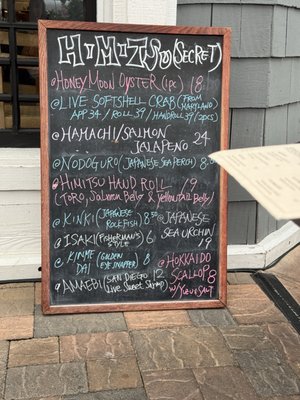 HiMiTSu (SECRET)
@ HONEY MOON OYSTER (1pc) 18
@ LIVE SOFTSHELL CRAB (FROM MARYLAND)
APP 34 / ROLL 39 / HANDROLL 39 / 2pcs
@ HAMACHI / SALMON
JALAPENO 24
@ NODOGURO (JAPANESE SEA PERCH) 8
@ HIMITSU HAND ROLL 19
(TORO, SALMON BELLY & YELLOWTAIL BELLY)
@ KINKI (JAPANESE ROCK FISH) 8
@ ISAKI (FISHERMAN'S STYLE) 6
@ KINME DAI (GOLDEN EYE SNAPPER) 8
@ AMAEBI (SAN DIEGO LIVE SWEET SHRIMP) 12
@ JAPANESE
SEA URCHIN
19
@ HOKKAIDO
SCALLOP 8
W/ YUZU & SALT